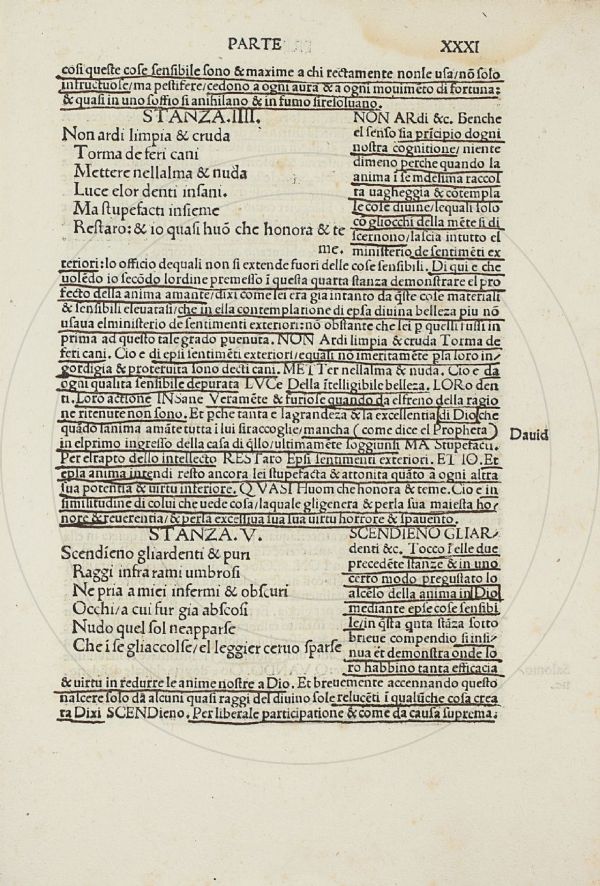 PARTE
XXXI
cosi queste cose sensibile sono & maxime a chi rectamente nonle usa/nō solo
infructuose/ma pestifere/cedono a ogni aura & a ogni mouimēto di fortuna:
& quasi in uno soffio si anihilano & in fumo siresoluano.
STANZA.IIII.
Non ardi limpia & cruda
Torma de feri cani
Mettere nellalma & nuda
Luce elor denti insani.
Ma stupefacti insieme
Restaro: & io quasi huō che honora & te
me.
NON ARdi &c. Benche
el senso sia prīcipio dogni
nostra cognitione/niente
dimeno perche quando la
anima ī se mdesima raccol
ta uagheggia & cōtempla
le cose diuine/lequali solo
cō gliocchi della mēte si di
scernono/lascia intutto el
ministerio de sentimēti ex
teriori: lo officio dequali non si extende fuori delle cose sensibili. Di qui e che
uolēdo io secōdo lordine premesso ī questa quarta stanza demonstrare el pro
fecto della anima amante/dixi come lei era gia intanto da q̄ste cose materiali
& sensibili eleuatasi/che in ella contemplatione di epsa diuina belleza piu nō
usaua elministerio de sentimenti exteriori: nō obstante che lei p quelli fussi in
prima ad questo tale grado puenuta. NON Ardi limpia & cruda Torma de
feri cani. Cio e di epsi sentimēti exteriori/equasi nō imeritamēte pla loro in
gordigia & proteruita sono decti cani. METTer nellalma & nuda. Cio e da
ogni qualita sensibile depurata LVCe Della ītelligibile belleza. LORo den
ti. Loro actione INSane Veramēte & furiose quando da elfreno della ragio
ne ritenute non sono. Et pche tanta e lagrandeza & la excellentia di Dio/che
quādo lanima amāte tutta i lui siraccoglie/mancha (come dice el Propheta)
in elprimo ingresso della casa di q̄llo/ultimamēte soggiunsi MA Stupefacti.
Per elrapto dello intellecto RESTaro Epsi sentimenti exteriori. ET IO. Et
epsa anima intendi resto ancora lei stupefacta & attonita quāto a ogni altra
sua potentia & uirtu inferiore. QVASI Huom che honora & teme. Cio e in
similitudine di colui che uede cosa/laquale gligenera & perla sua maiesta ho
nore & reuerentia/& perla excessiua sua uirtu horrore & spauento.
Dauid
STANZA.V.
Scendieno gliardenti & puri
Raggi infra rami umbrosi
Ne pria a miei infermi & obscuri
Occhi/a cui fur gia abscosi
Nudo quel sol neapparse
Che ī se gliaccolse/el leggier ceruo sparse
SCENDIENO GLIAR
denti &c. Tocco ī elle due
precedēte stanze & in uno
certo modo pregustato lo
alcēlo della anima in Dio
mediante epse cose sensibi
le/in q̄sta qnta stāza sotto
brieue compendio si insi
nua et demonstra onde lo
ro habbino tanta efficacia
& uirtu in redurre le anime nostre a Dio. Et breuemente accennando questo
nascere solo da alcuni quasi raggi del diuino sole relucēti ī qualūche cosa crea
ta Dixi SCENDieno. Per liberale participatione & come da causa suprema.